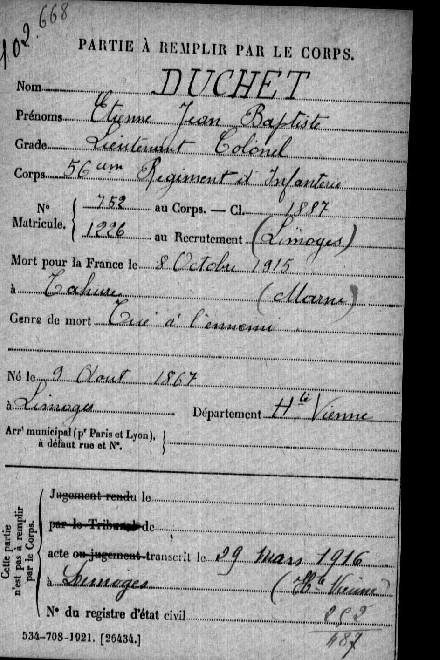 102.668
PARTIE À REMPLIR PAR LE CORPS.
Nom DUCHET
Prénoms Etienne Jean Baptiste
Grade Lieutenant Colonel
Corps 56eme Régiment d'Infanterie
N° Matricule. { 752 au Corps. — Cl. 1887
1226 au Recrutement (Limoges)
Mort pour la France le 8 Octobre 1915
à Tahure (Marne)
Genre de mort Tué à l'ennemi
Né le 9 Aout 1867
à Limoges Département Hte Vienne
Arrt municipal (pr Paris et Lyon),
à défaut rue et N°.
Cette partie n'est pas à remplir par le Corps.
Jugement rendu le
par le Tribunal de
acte ou jugement transcrit le 29 mars 1916
à Limoges (Hte Vienne)
N° du registre d'état civil 252
487
534-708-1921. [26434.]